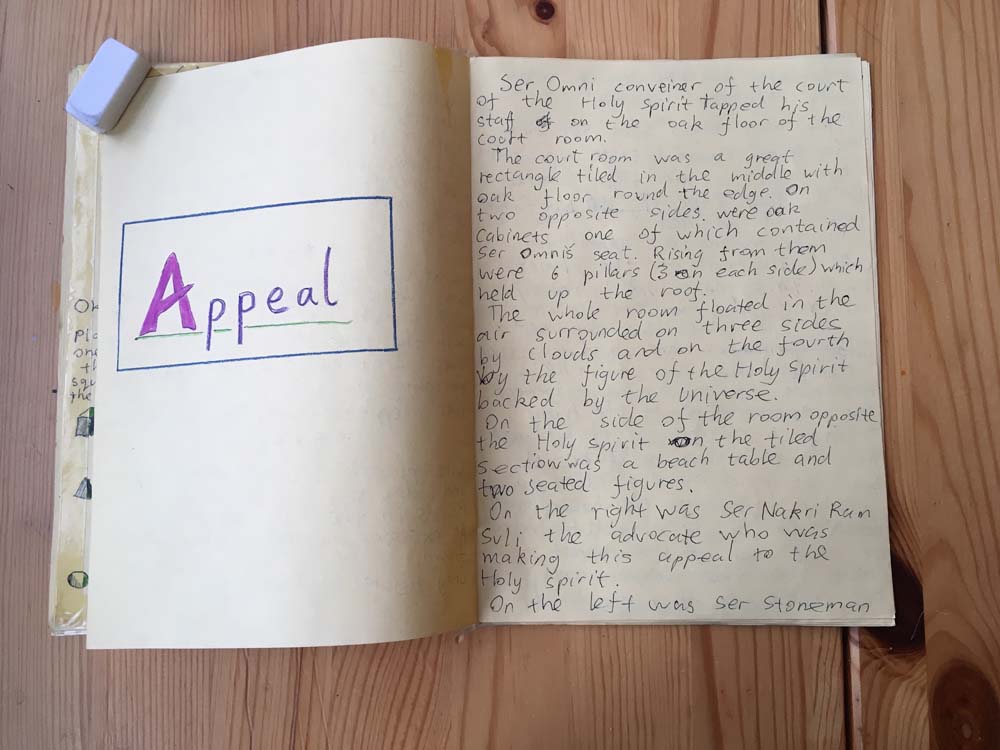 Appeal
Ser Omni conveiner of the court
of the Holy Spirit tapped his
staff on the oak floor of the
court room.
The court room was a great
rectangle tiled in the middle with
oak floor round the edge. On
two opposite sides. were oak
Cabinets one of which contained
Ser Omnis seat. Rising from them
were 6 pillars (3 on each side) which
held up the roof.
The whole room floated in the
air surrounded on three sides
by clouds and on the fourth
by the figure of the Holy Spirit
backed by the Universe.
On the side of the room opposite
the Holy Spirit on the tiled
section was a beach table and
two seated figures.
On the right was Ser Nakri Ram
Suli the advocate who was
making this appeal to the
Holy spirit.
On the left was Ser Stoneman